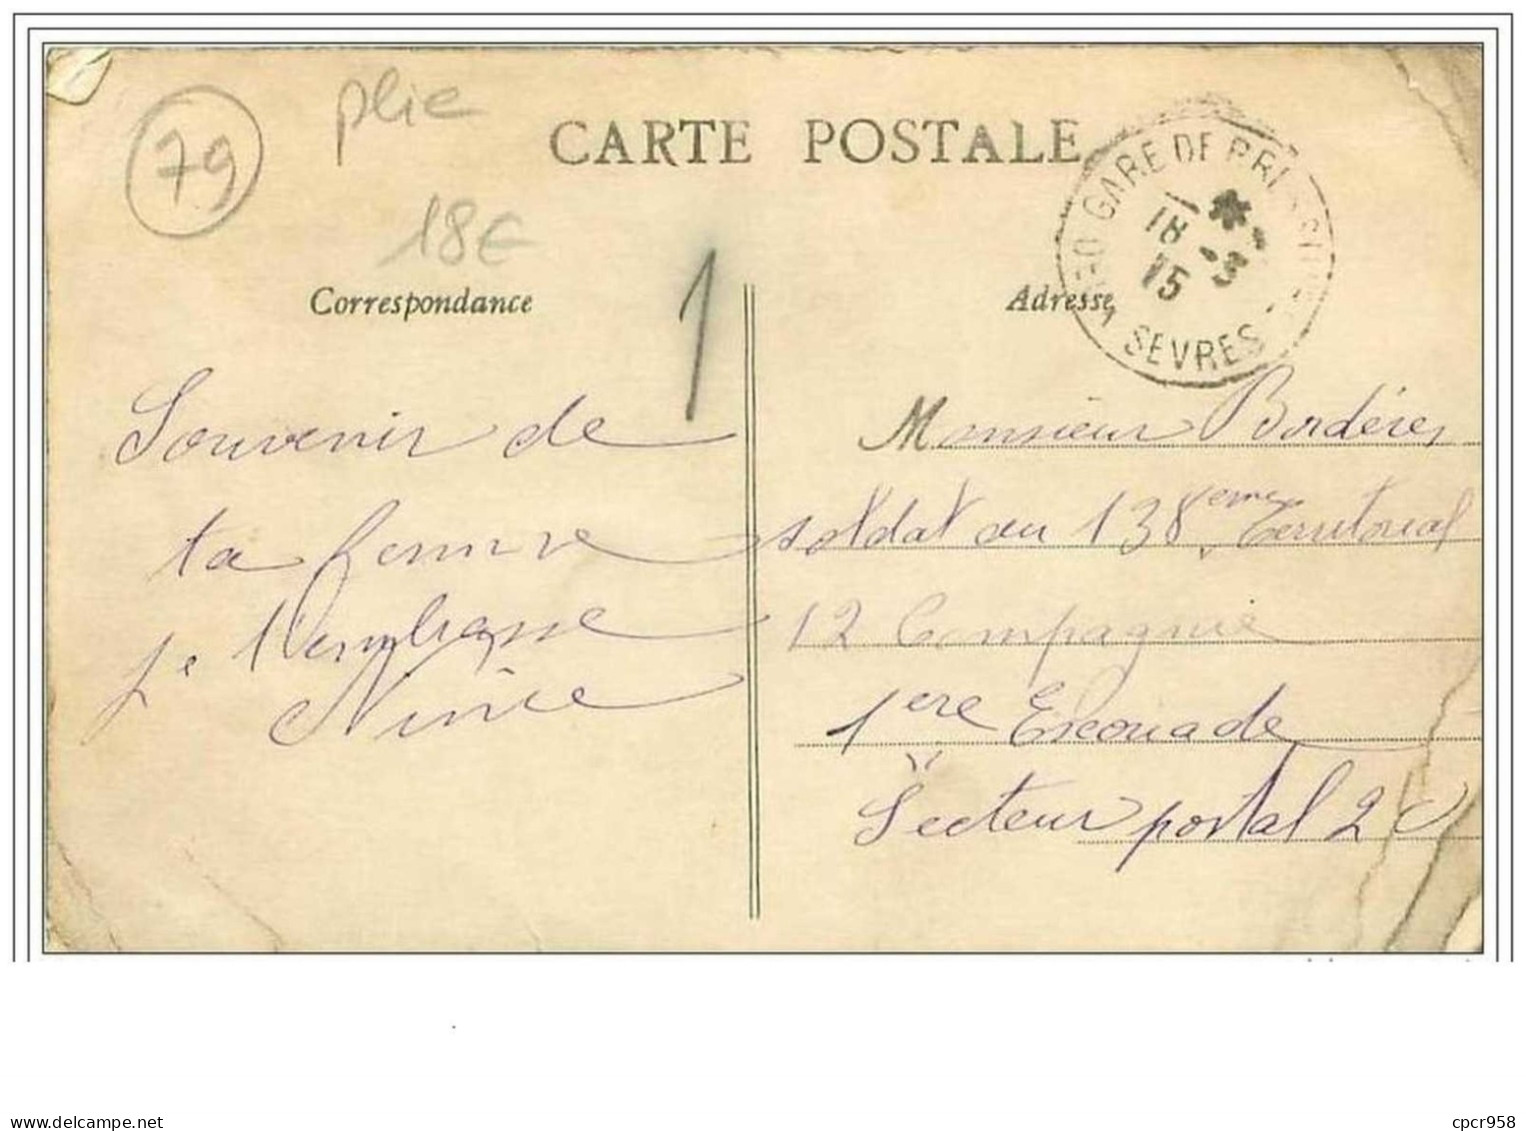 79
plie
18€
CARTE POSTALE
GARE DE PRIN
18 -3
15
SEVRES
Correspondance
1
Adresse
Souvenir de
ta femme
je t'embrasse
Monsieur Bordères
soldat au 138eme Territorial
12 Compagnie
1ere Escouade
Secteur postal 2
cpcr958